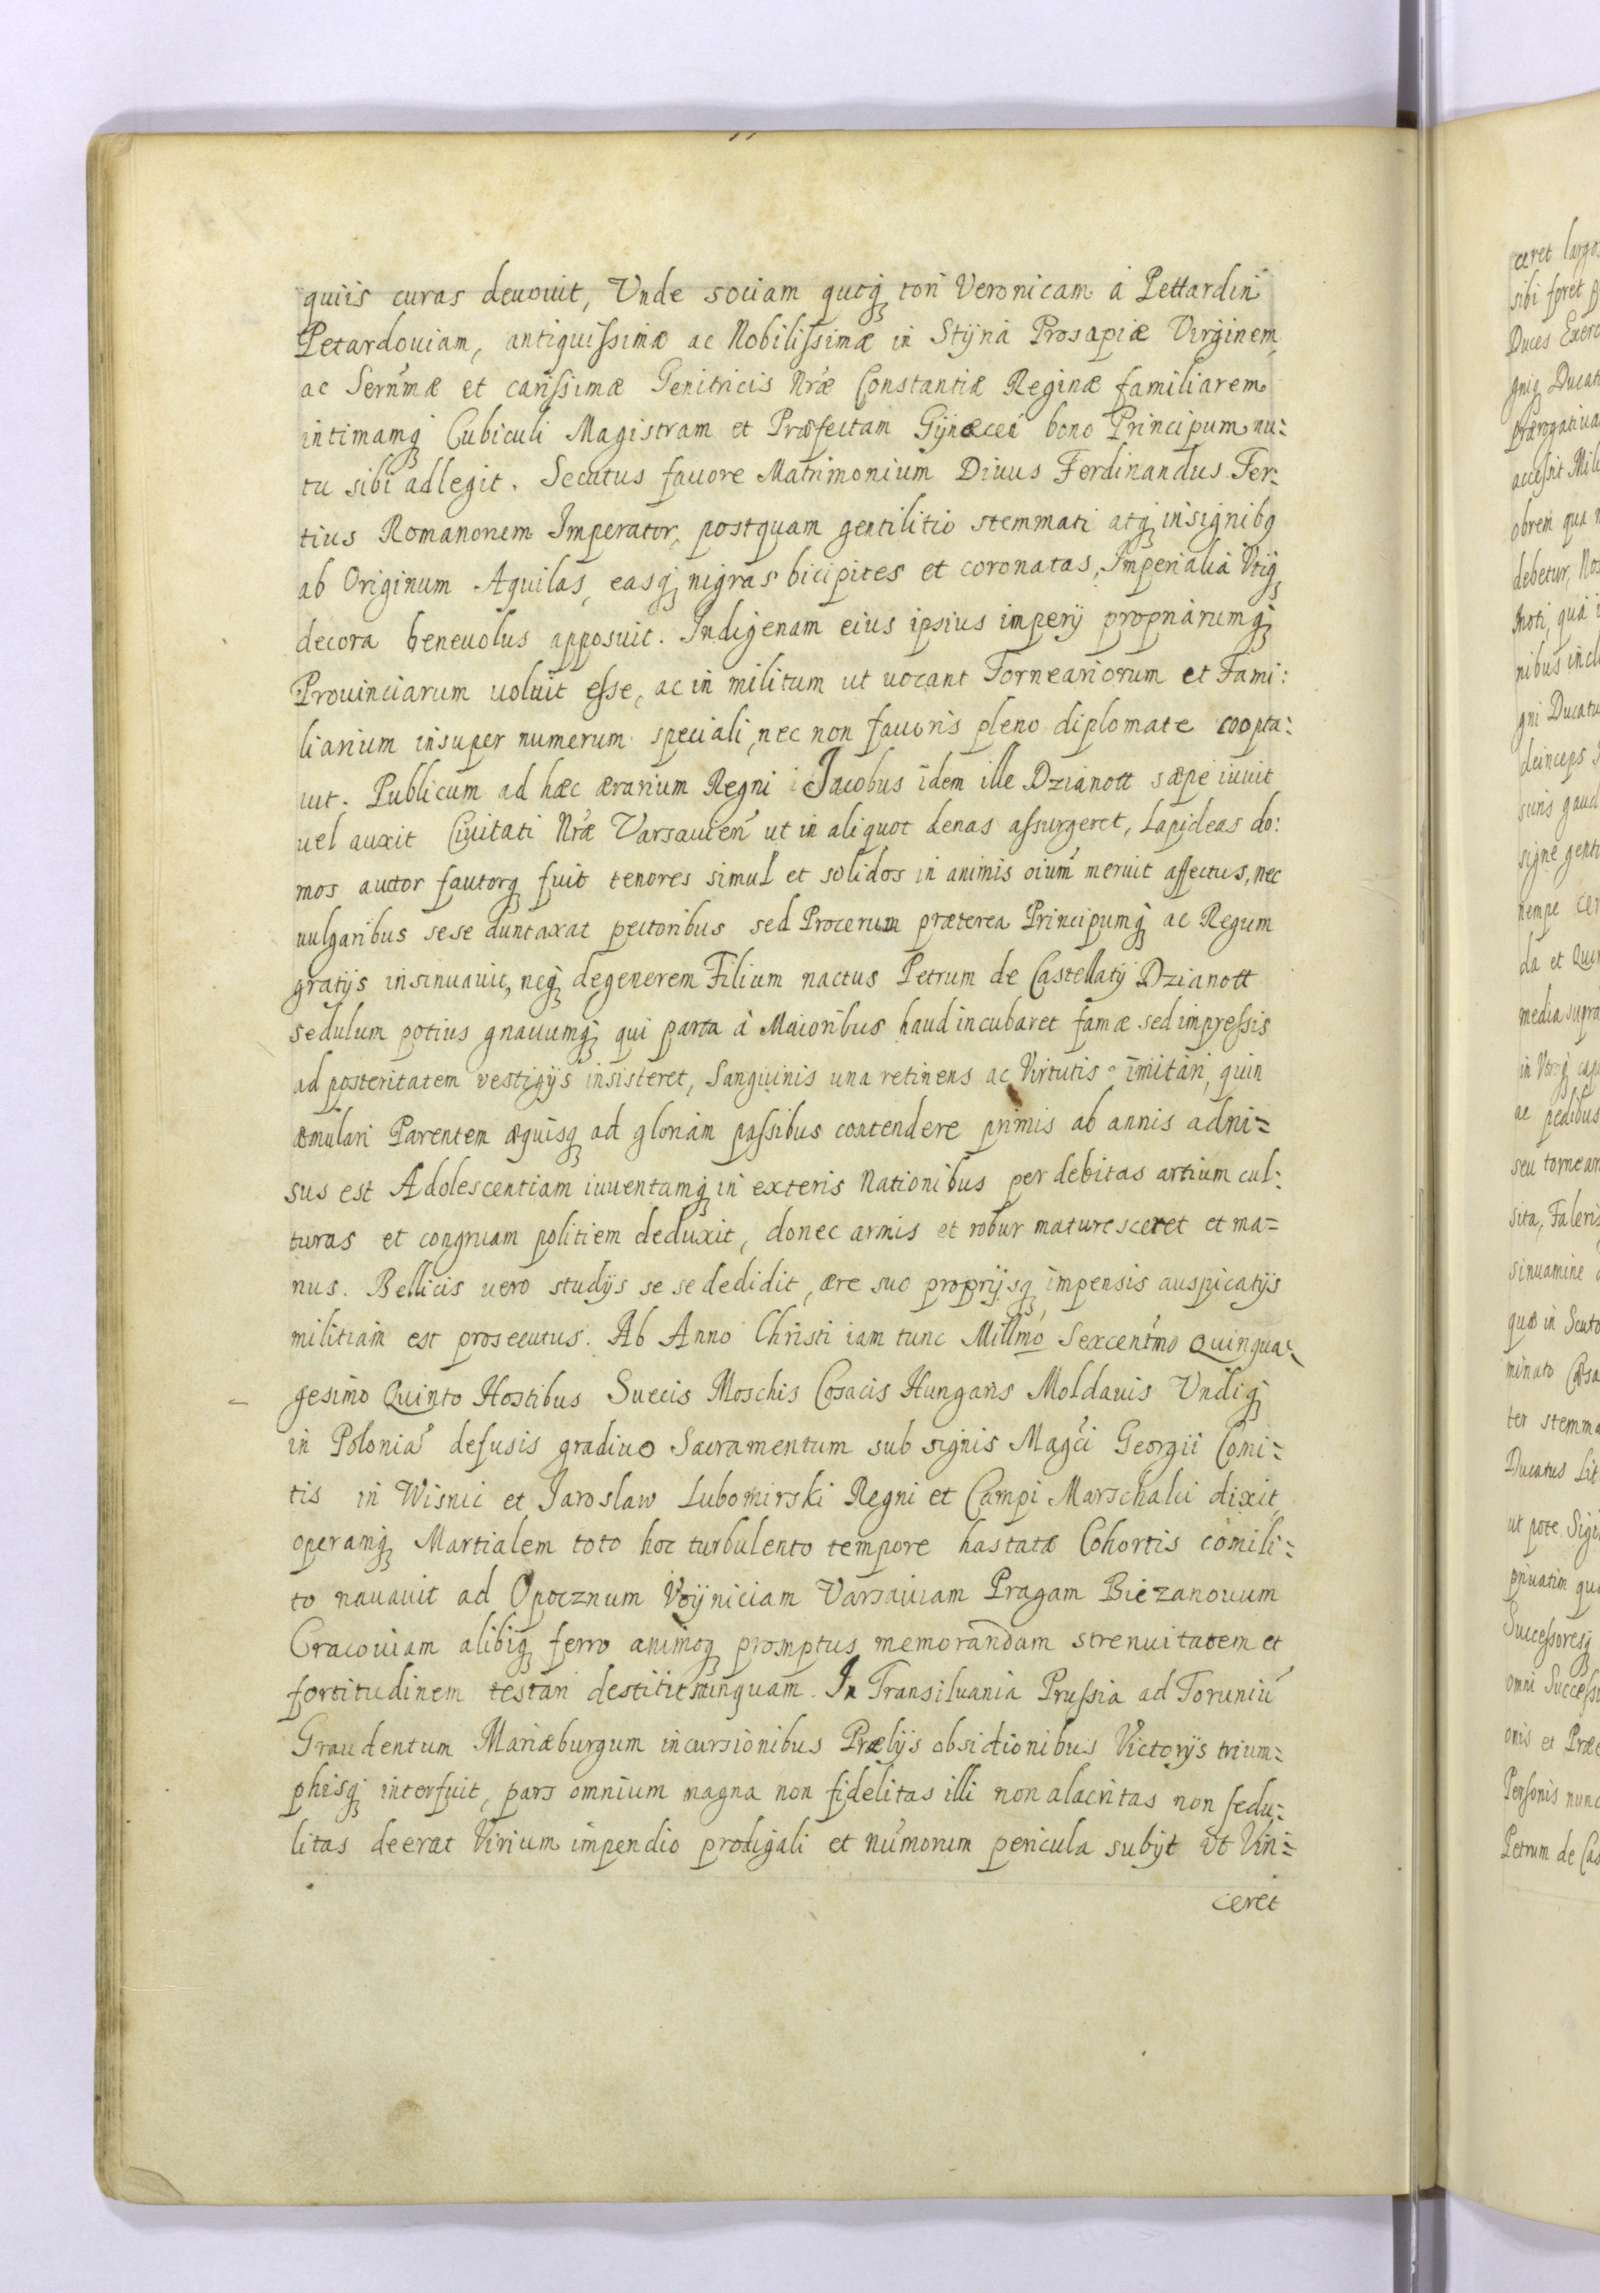 quiis curas deuouit, Vnde sociam quoq; tori Veronicam á Pettardin
Petardouiam, antiquissimæ ac Nobilissimæ in Stÿria Prosapiæ Virginem,
ac Sernmæ et carissimæ Genitricis Nræ Constantiæ Reginæ familiarem
intimamq; Cubiculi Magistram et Præfectam Gÿnæcei bono Principum nu:
tu sibi adlegit. Secutus fauore Matrimonium Diuus Ferdinandus Ter:
tius Romanorem Imperator, postquam gentilitio stemmati atq; insignibq
ab Originum Aquilas, easq; nigras bicipites et coronatas, Imperialia Vtiq;
decora beneuolus apposuit. Indigenam eius ipsius imperÿ propriarumq;
Prouinciarum uoluit esse, ac in militum ut uocant Torneariorum et Fami:
liarium insuper numerum speciali, nec non fauoris pleno diplomate coopta:
uit. Publicum ad hæc ærarium Regni Jacobus idem ille Dzianott sæpe iuuit
uel auxit Ciuitati Nræ Varsauien ut in aliquot denas assurgeret, Lapideas do:
mos auctor fautorq; fuit tenores simul et solidos in animis oium meruit affectus, nec
uulgaribus sese duntaxat pectoribus sed Procerum præterea Principumq; ac Regum
gratÿs insinuauit, neq; degenerem Filium nactus Petrum de Castellatÿ Dzianott
sedulum potius gnauumq; qui parta á Maioribus haud incubaret famæ sed impressis
ad posteritatem vestigÿs insisteret, Sanguinis una retinens ac Virtutis imitari, quin
æmulari Parentem æquisq; ad gloriam passibus contendere primis ab annis adni=
sus est Adolescentiam iuuentamq; in exteris Nationibus per debitas artium cul:
turas et congruam politiem deduxit, donec armis et robur maturesceret et ma=
nus. Bellicis uero studÿs se se dedidit, ære suo proprÿsq; impensis auspicatÿs
militiam est prosecutus. Ab Anno Christi iam tunc Millmo Sexcentmo Quinqua=
gesimo Quinto Hostibus Suecis Moschis Cosacis Hungaris Moldauis Vndiq;
in Polonia defusis gradiuo Sacramentum sub signis Magci Georgii Comi=
tis in Wisnic et Jaroslaw Lubomirski Regni et Campi Marschalci dixit,
operamq; Martialem toto hoc turbulento tempore hastatæ Cohortis comili=
to nauauit ad Opocznum Voÿniciam Varsauiam Pragam Biezanouum
Cracouiam alibiq; ferro animoq; promptus memorandam strenuitatem et
fortitudinem testari destitit nunquam. In Transiluania Prussia ad Toruniu
Graudentum Mariæburgum incursionibus Prælÿs obsidionibus Victorÿs trium=
phisq; interfuit, pars omnium magna non fidelitas illi non alacritas non sedu=
litas deerat Virium impendio prodigali et numorum pericula subÿt ut Vin=
ceret